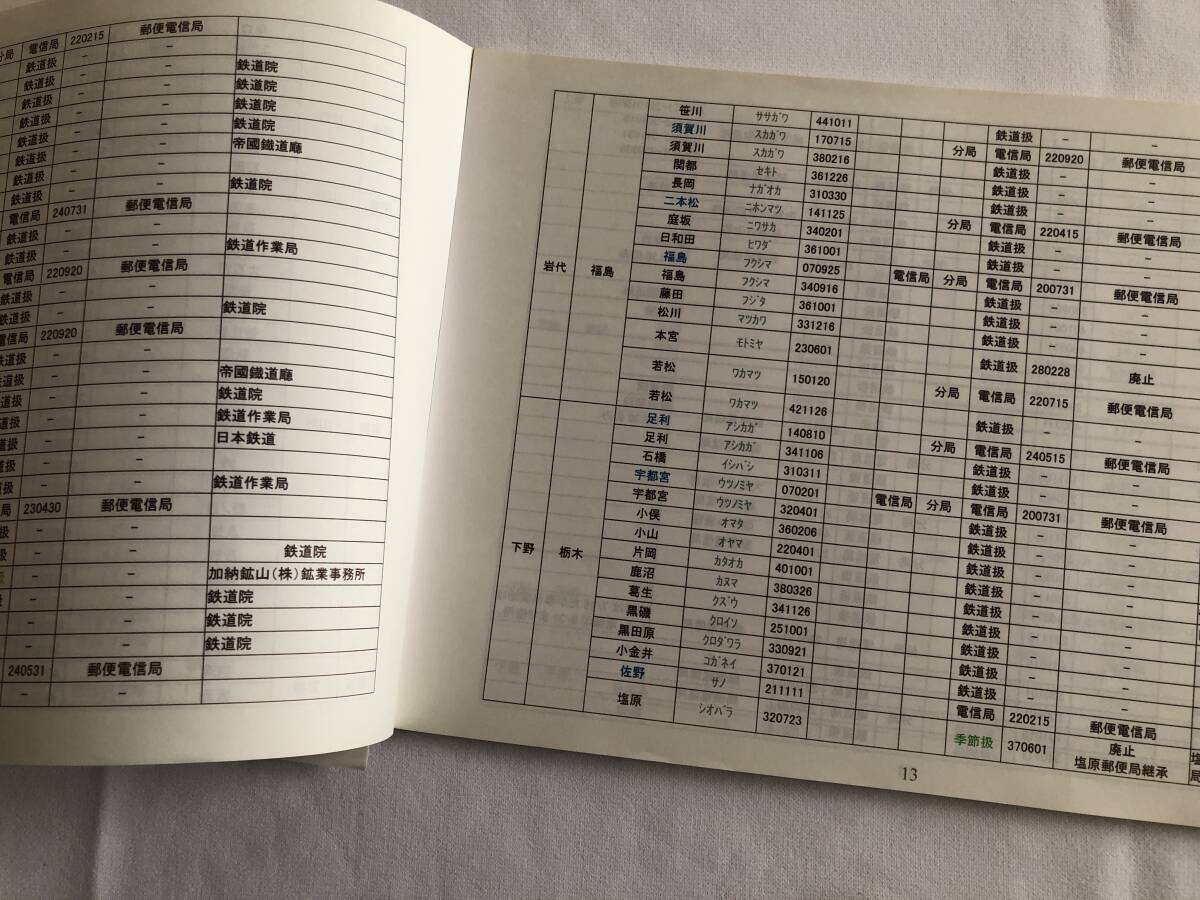 分局 電信局 220215 郵便電信局
鉄道扱 - -
鉄道扱 - - 鉄道院
鉄道扱 - - 鉄道院
鉄道扱 - - 鉄道院
鉄道扱 - - 鉄道院
鉄道扱 - - 帝國鐡道廳
鉄道扱 - -
鉄道扱 - - 鉄道院
電信局 240731 郵便電信局
鉄道扱 - -
鉄道扱 - - 鉄道作業局
電信局 220920 郵便電信局
鉄道扱 - -
鉄道扱 - - 鉄道院
電信局 220920 郵便電信局
鉄道扱 - -
鉄道扱 - - 帝國鐡道廳
鉄道扱 - - 鉄道院
鉄道扱 - - 鉄道作業局
- - 日本鉄道
- -
- - 鉄道作業局
局 230430 郵便電信局
扱 - -
- - 鉄道院
- - 加納鉱山(株)鉱業事務所
- - 鉄道院
- - 鉄道院
- - 鉄道院
240531 郵便電信局
- -
岩代 福島
笹川 ササガワ 441011 鉄道扱 - -
須賀川 スカガワ 170715 分局 電信局 220920 郵便電信局
須賀川 スカガワ 380216 鉄道扱 - -
関都 セキト 361226 鉄道扱 - -
長岡 ナガオカ 310330 鉄道扱 - -
二本松 ニホンマツ 141125 分局 電信局 220415 郵便電信局
庭坂 ニワサカ 340201 鉄道扱 - -
日和田 ヒワダ 361001 鉄道扱 - -
福島 フクシマ 070925 電信局 分局 電信局 200731 郵便電信局
福島 フクシマ 340916 鉄道扱 - -
藤田 フジタ 361001 鉄道扱 - -
松川 マツカワ 331216 鉄道扱 - -
本宮 モトミヤ 230601 鉄道扱 280228 廃止
若松 ワカマツ 150120 分局 電信局 220715 郵便電信局
若松 ワカマツ 421126 鉄道扱 - -
下野 栃木
足利 アシカガ 140810 分局 電信局 240515 郵便電信局
足利 アシカガ 341106 鉄道扱 - -
石橋 イシバシ 310311 鉄道扱 - -
宇都宮 ウツノミヤ 070201 電信局 分局 電信局 200731 郵便電信局
宇都宮 ウツノミヤ 320401 鉄道扱 - -
小俣 オマタ 360206 鉄道扱 - -
小山 オヤマ 220401 鉄道扱 - -
片岡 カタオカ 401001 鉄道扱 - -
鹿沼 カヌマ 380326 鉄道扱 - -
葛生 クズウ 341126 鉄道扱 - -
黒磯 クロイソ 251001 鉄道扱 - -
黒田原 クロダワラ 330921 鉄道扱 - -
小金井 コガネイ 370121 鉄道扱 - -
佐野 サノ 211111 電信局 220215 郵便電信局
塩原 シオバラ 320723 季節扱 370601 廃止
塩原郵便局継承
13